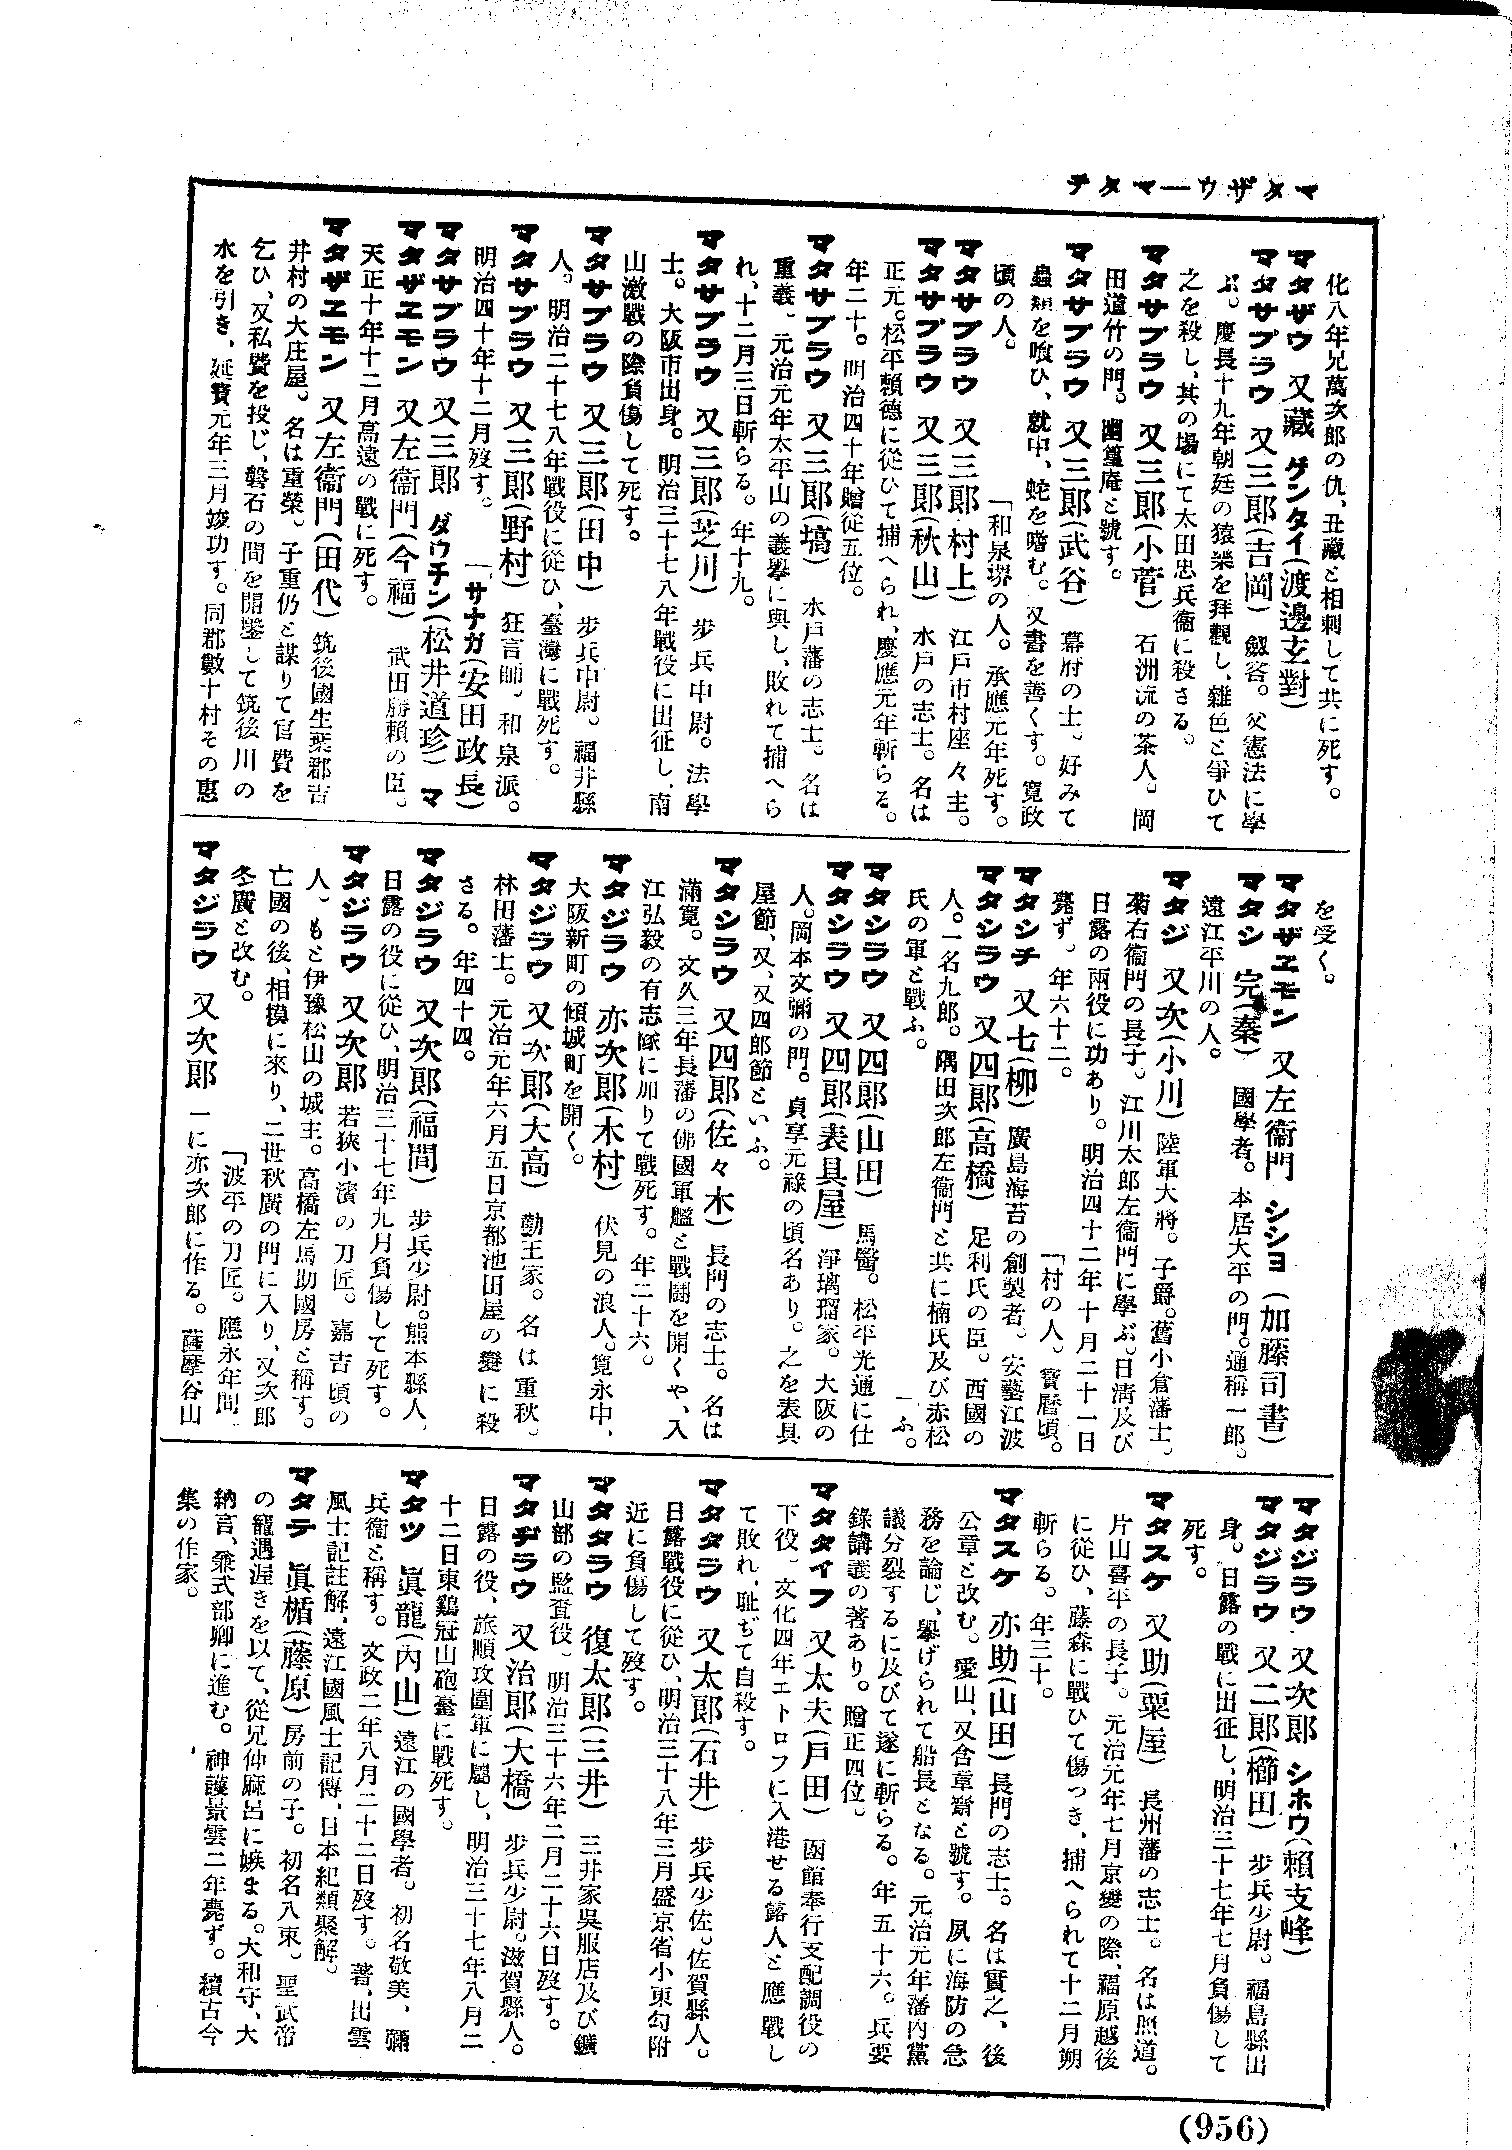 マタザウ―マタテ
化八年兄萬次郎の仇、丑藏と相刺して共に死す。
マタザウ 又藏 ゲンタイ(渡邊玄對)
マタサブラウ 又三郎(吉岡) 劔客。父憲法に學
ぶ。慶長十九年朝廷の猿樂を拜觀し、雜色と爭ひて
之を殺し、其の場にて太田忠兵衞に殺さる。
マタサブラウ 又三郎(小菅) 石洲流の茶人。岡
田道竹の門。幽篁庵と號す。
マタサブラウ 又三郎(武谷) 幕府の士。好みて
蟲類を喰ひ、就中、蛇を嗜む。又書を善くす。寬政
頃の人。
「和泉堺の人。承應元年死す。
マタサブラウ 又三郎(村上) 江戸市村座々主。
マタサブラウ 又三郎(秋山) 水戸の志士。名は
正元。松平賴德に從ひて捕へられ、慶應元年斬らる。
年二十。明治四十年贈從五位。
マタサブラウ 又三郎(塙) 水戸藩の志士。名は
重義。元治元年太平山の義擧に與し、敗れて捕へら
れ、十二月三日斬らる。年十九。
マタサブラウ 又三郎(芝川) 步兵中尉。法學
士。大阪市出身。明治三十七八年戰役に出征し、南
山激戰の際負傷して死す。
マタサブラウ 又三郎(田中) 步兵中尉。福井縣
人。明治二十七八年戰役に從ひ、臺灣に戰死す。
マタサブラウ 又三郎(野村) 狂言師。和泉派。
明治四十年十二月歿す。
「サナガ(安田政長)
マタサブラウ 又三郎 ダウチン(松井道珍) マ
マタザヱモン 又左衞門(今福) 武田勝賴の臣。
天正十年十二月高遠の戰に死す。
マタザヱモン 又左衞門(田代) 筑後國生葉郡吉
井村の大庄屋。名は重榮。子重仍と謀りて官費を
乞ひ、又私費を投じ、磐石の間を開鑿して筑後川の
水を引き、延寶元年三月竣功す。同郡數十村その惠
を受く。
マタザヱモン 又左衞門 シシヨ(加藤司書)
マタシ 完(秦) 國學者。本居大平の門。通稱一郎。
遠江平川の人。
マタジ 又次(小川) 陸軍大將。子爵。舊小倉藩士。
菊右衞門の長子。江川太郎左衞門に學ぶ。日淸及び
日露の兩役に功あり。明治四十二年十月二十一日
薨ず。年六十二。
「村の人。寶曆頃。
マタシチ 又七(柳) 廣島海苔の創製者。安藝江波
マタシラウ 又四郎(高橋) 足利氏の臣。西國の
人。一名九郎。隅田次郎左衞門と共に楠氏及び赤松
氏の軍と戰ふ。
「ふ。
マタシラウ 又四郎(山田) 馬醫。松平光通に仕
マタシラウ 又四郎(表具屋) 淨璃瑠家。大阪の
人。岡本文彌の門。貞享元祿の頃名あり。之を表具
屋節、又、又四郎節といふ。
マタシラウ 又四郎(佐々木) 長門の志士。名は
滿寬。文久三年長藩の佛國軍艦と戰鬪を開くや、入
江弘毅の有志隊に加りて戰死す。年二十六。
マタジラウ 亦次郎(木村) 伏見の浪人。寬永中、
大阪新町の傾城町を開く。
マタジラウ 又次郎(大高) 勤王家。名は重秋。
林田藩士。元治元年六月五日京都池田屋の變に殺
さる。年四十四。
マタジラウ 又次郎(福間) 步兵少尉。熊本縣人。
日露の役に從ひ、明治三十七年九月負傷して死す。
マタジラウ 又次郎 若狹小濱の刀匠。嘉吉頃の
人、もと伊豫松山の城主。高橋左馬助國房と稱す。
亡國の後、相摸に來り、二世秋廣の門に入り、又次郎
冬廣と改む。
「波平の刀匠。應永年間
マタジラウ 又次郎 一に亦次郎に作る。薩摩谷山
マタジラウ 又次郎 シホウ(賴支峰)
マタジラウ 又二郎(櫛田) 步兵少尉。福島縣出
身。日露の戰に出征し、明治三十七年七月負傷して
死す。
マタスケ 又助(粟屋) 長州藩の志士。名は照道。
片山喜平の長子。元治元年七月京變の際、福原越後
に從ひ、藤森に戰ひて傷つき、捕へられて十二月朔
斬らる。年三十。
マタスケ 亦助(山田) 長門の志士。名は實之、後
公章と改む。愛山、又含章齋と號す。夙に海防の急
務を論じ、擧げられて船長となる。元治元年藩內黨
議分裂するに及びて遂に斬らる。年五十六。兵要
錄講義の著あり。贈正四位。
マタタイフ 又太夫(戸田) 函館奉行支配調役の
下役。文化四年エトロフに入港せる露人と應戰し
て敗れ、耻ぢて自殺す。
マタタラウ 又太郎(石井) 步兵少佐。佐賀縣人。
日露戰役に從ひ、明治三十八年三月盛京省小東勾附
近に負傷して歿す。
マタタラウ 復太郎(三井) 三井家吳服店及び鑛
山部の監査役。明治三十六年二月二十六日歿す。
マタヂラウ 又治郎(大橋) 步兵少尉。滋賀縣人。
日露の役、旅順攻圍軍に屬し、明治三十七年八月二
十二日東鷄冠山砲臺に戰死す。
マタツ 眞龍(內山) 遠江の國學者。初名敬美、彌
兵衞と稱す。文政二年八月二十二日歿す。著、出雲
風士記註解、遠江國風士記傳、日本紀類聚解。
マタテ 眞楯(藤原) 房前の子。初名八束。聖武帝
の寵遇渥きを以て、從兄仲麻呂に嫉まる。大和守、大
納言、兼式部卿に進む。神護景雲二年薨ず。續古今
集の作家。
(956)